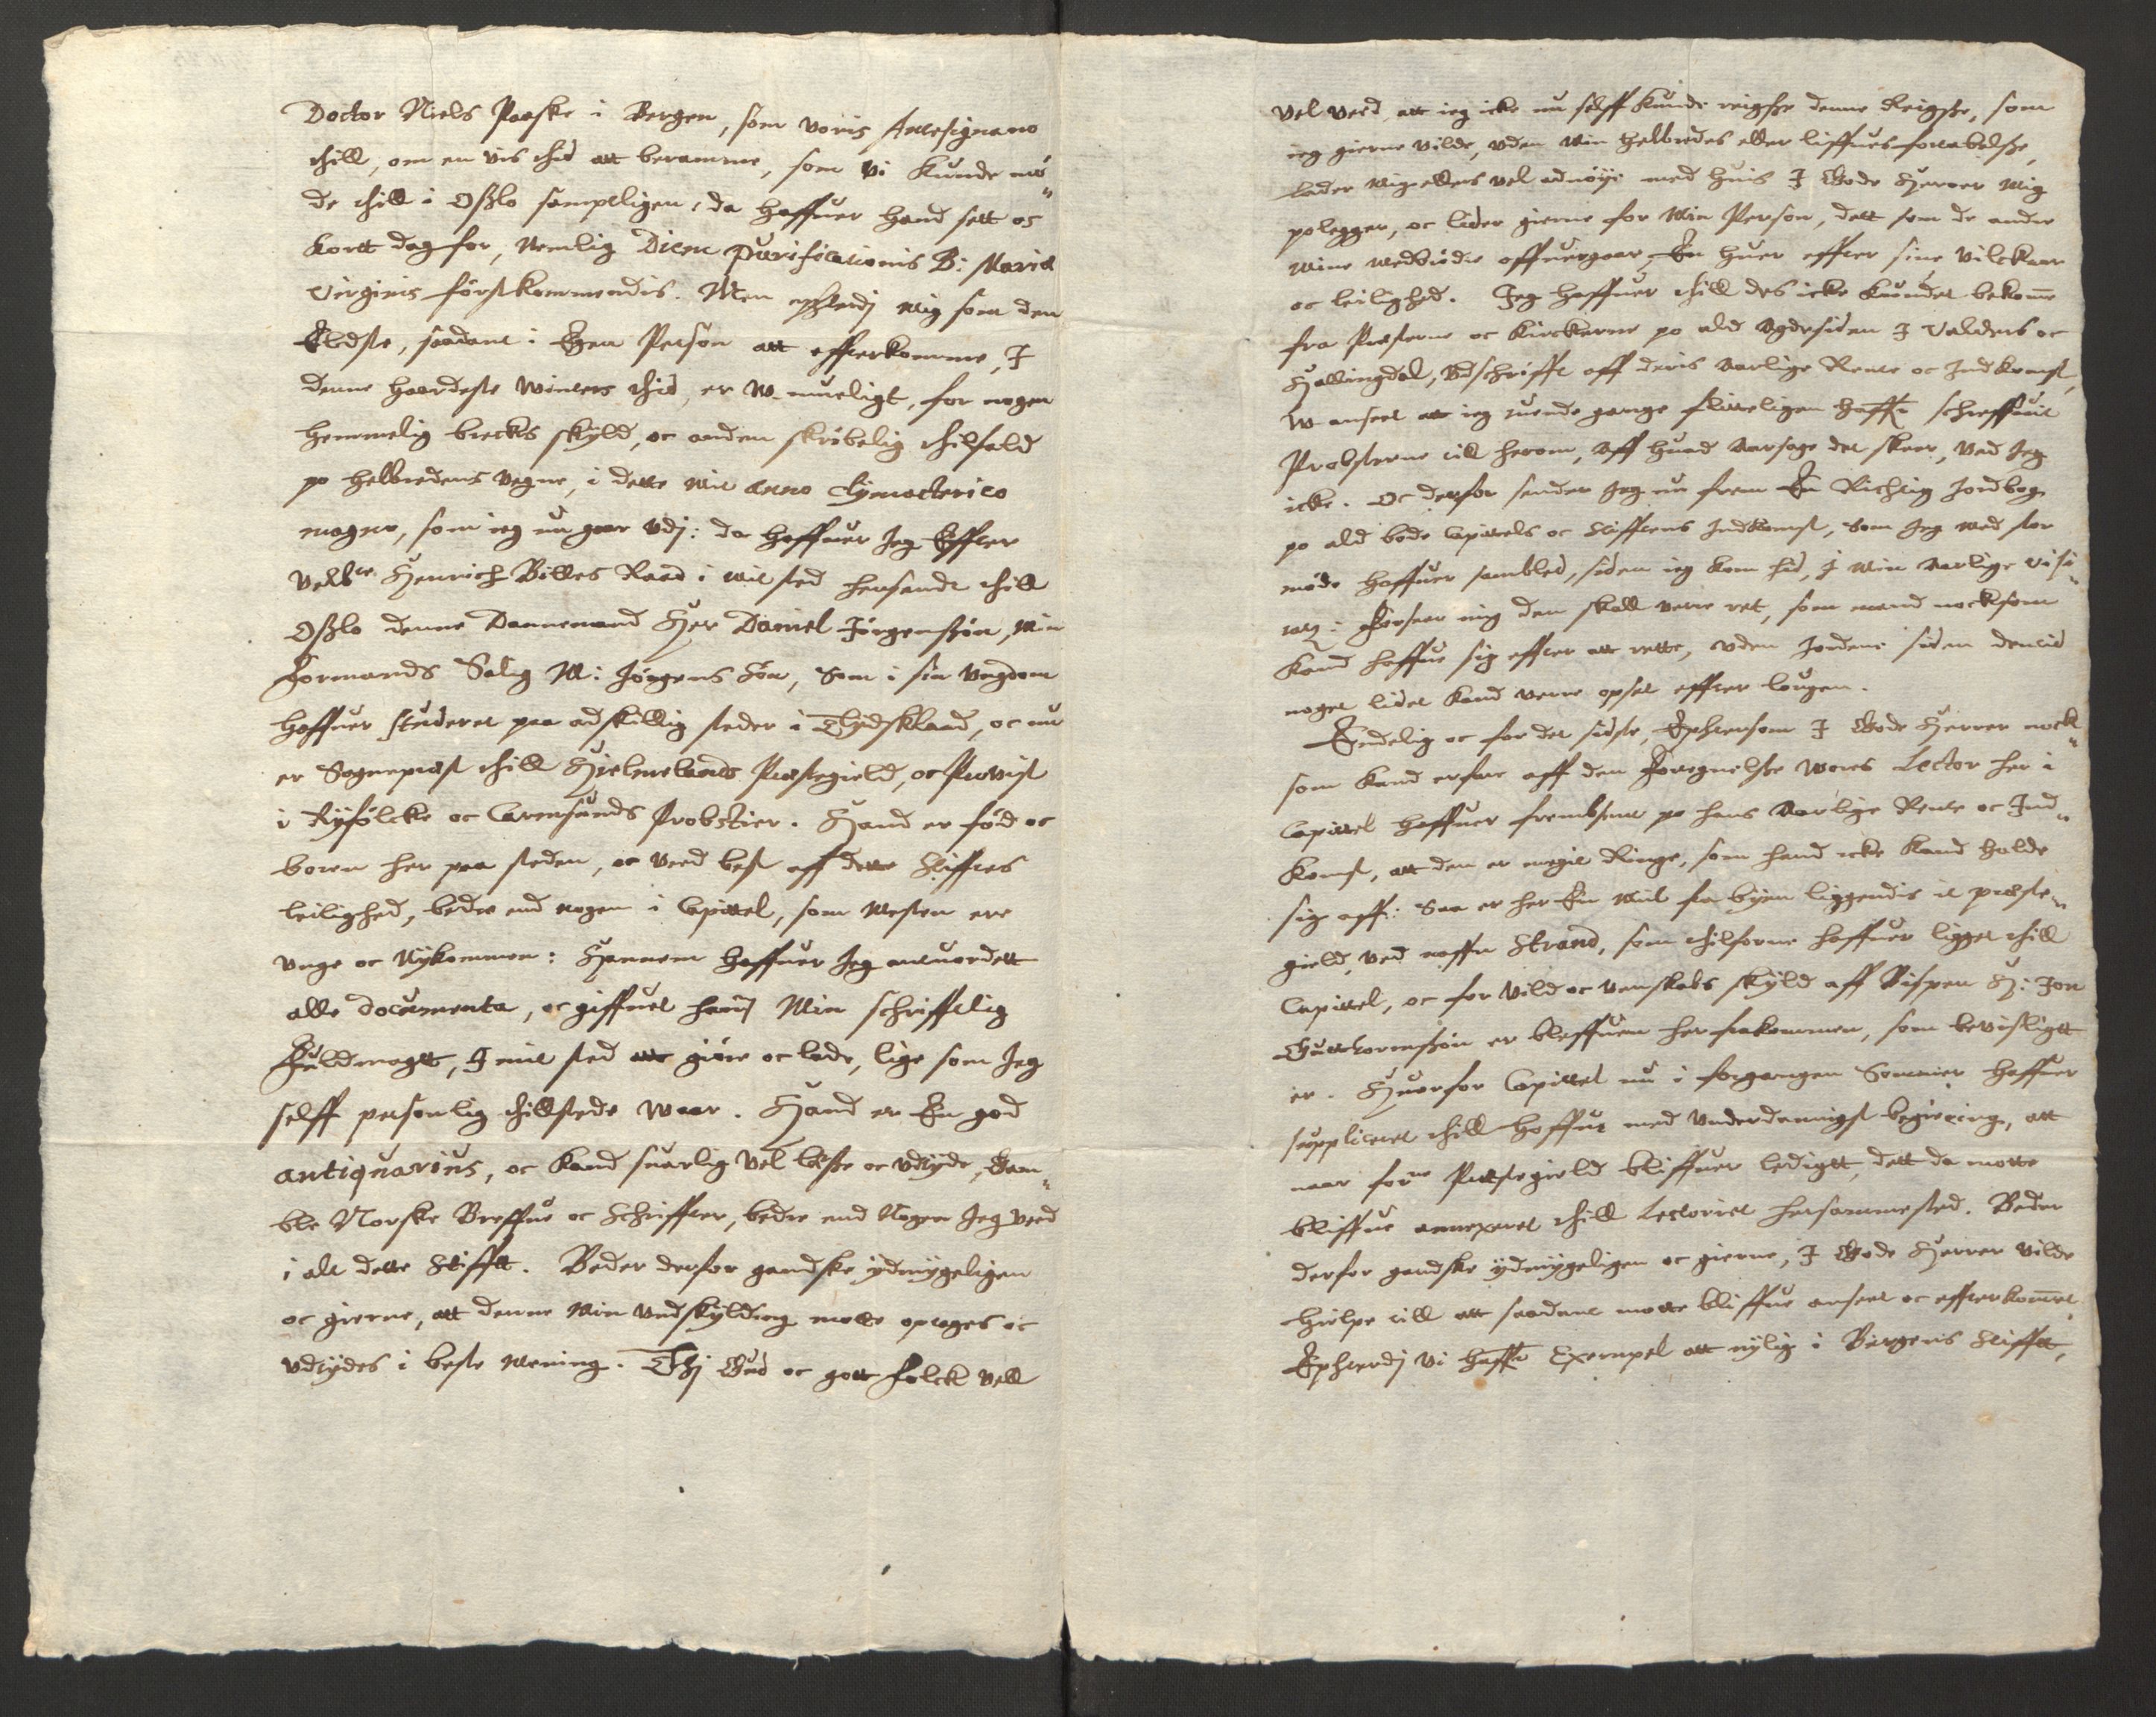 Doctor Niels Paaske i Bergen, som voris Antesignano
thill, om en vis thid att beramme, som vi kunde mö„
de thill i Oßlo samptligen, da haffuer hand sett os
kortt dag for, Nemlig Diem Purificationis B: Mariæ
Virginis førstkommendis. Men epfterdj mig som den
Eldste, saadant i Egen Person att efterkomme, I
denne haardeste Winters thid, er W-mueligt, for nogen
hemmelig brecks skyld, oc anden skrøbelig thilfald
po helbredens vegne, i dette mit anno Clymacterico
magno, som ieg nu gaar vdj: da haffuer Jeg Effter
Velb:ge Henrich Billes Raad i mit sted hensendt thill
Oßlo denne Dannemand Her Daniel Jørgensøn, min
Formands Salig M: Jørgens Søn, Som i sin vngdom
haffuer studeret paa adskillig steder i Thydskland, oc nu
er Sognepræst thill Hjelmelands Præstegield, oc Provist
i Ryfølcke oc Carmsunds Probstier. Hand er fød oc
boren her paa steden, oc veed best aff dette Stifftes
leilighed, bedre end nogen i Capittel, som mesten ere
vnge oc Nykommen: Hannem haffuer Jeg antuordett
alle documenta, oc giffuet hans Min schrifftlig
Fuldmagtt, I mit sted att giøre oc lade, lige som Jeg
selff personlig thillstede waar. Hand er En god
antiqvarius, oc kand suarlig vel læsse oc vdtyde, Gam„
ble Norske Breffue oc Schriffter, bedre end Nogen Jeg veed
i alt dette Stifft. Beder derfor gandske ydmygeligen
oc gierne, att denne min vndskylding motte optages oc
vdtydes i beste mening. Thj Gud oc gott folck vell
vel veed att ieg icke nu selff kunde reigsse denne Reigsse, som
ieg gierne vilde, vden min helbredes eller liffues fortabelsse,
lader mig ellers vel adnøye med huis I Gode Herrer mig
polegger, oc lider gierne for min Person, dett som de andre
mine medbrødre offuergaar, En huer effter sine vilckaar
oc leilighed. Jeg haffuer thill des icke kundet bekom̄e
fra Præsterne oc Kirckerne po ald Agdesiden I Valders oc
Hallingdal, Vdschrifft aff deris aarlige Rente oc Indkomst,
W-anseet att ieg tuende gange flitteligen haffr schreffuit
Probsterne till herom, Aff huad aarsage det skeer, ved Jeg
icke. Oc derfor sender Jeg nu frem En Richtig Jordbog
po ald bode Capittels oc Stifftens Indkomst, Som Jeg med stor
møde haffuer samblet, siden ieg kom hid, i min aarlige visi„
tatz: Forseer mig den skall vere ret, som mand nocksom
kand haffue sig effter att rette, vden Jorderne siden dentid
noget lidet kand vere opset effter lougen.
Endelig oc for det sidste, Ephtersom I Gode Herrer nock„
som kand erfare aff den Foregnelsse wores Lector her i
Capittel haffuer frembsent po hans Aarlige Rente oc Ind„
komst, att den er megit Ringe, som hand icke kand holde
sig aff: Saa er her En Miil fra byen liggendis it præste„
gield, ved naffn Strand, som thilforne haffuer ligget thill
Capittel, oc for vild oc venskabs skyld aff Bispen H: Jon
Gutthormssøn er bleffuen herfrakommen, som bevisligtt
er. Huorfor Capittel nu i forgangen Sommer haffuer
suppliceret thill Hoffue med vnderdanigst begiering, att
naar forne Præstegield bliffuer ledigtt, dett da motte
bliffue annexeret thill Lectoriet hersammested. Beder
derfor gandske ydmygeligen oc gierne, I Gode Herrer vilde
hielpe till att saadant motte bliffue anseet oc effterkom̄et
Ephterdj vi haffr Exempel att nylig i Bergens Stifft,